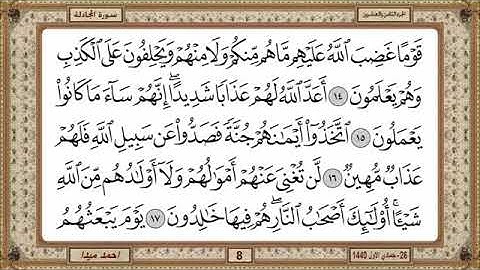 الجزء الثامن والعشرون
سورة المجادلة
قَوْمًا غَضِبَ ٱللَّهُ عَلَيْهِم مَّا هُم مِّنكُمْ وَلَا مِنْهُمْ وَيَحْلِفُونَ عَلَى ٱلْكَذِبِ
وَهُمْ يَعْلَمُونَ ١٤ أَعَدَّ ٱللَّهُ لَهُمْ عَذَابًا شَدِيدًا ۖ إِنَّهُمْ سَآءَ مَا كَانُوا۟
يَعْمَلُونَ ١٥ ٱتَّخَذُوٓا۟ أَيْمَٰنَهُمْ جُنَّةً فَصَدُّوا۟ عَن سَبِيلِ ٱللَّهِ فَلَهُمْ
عَذَابٌ مُّهِينٌ ١٦ لَّن تُغْنِىَ عَنْهُمْ أَمْوَٰلُهُمْ وَلَآ أَوْلَٰدُهُم مِّنَ ٱللَّهِ
شَيْـًٔا ۚ أُو۟لَٰٓئِكَ أَصْحَٰبُ ٱلنَّارِ ۖ هُمْ فِيهَا خَٰلِدُونَ ١٧ يَوْمَ يَبْعَثُهُمُ
26- جمادي الأول 1440
8
احمد ميدا